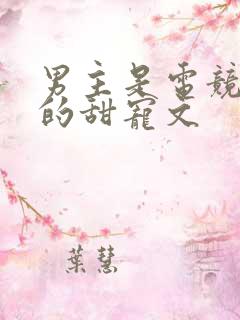 男主是电竞
的甜寵文
葉慧